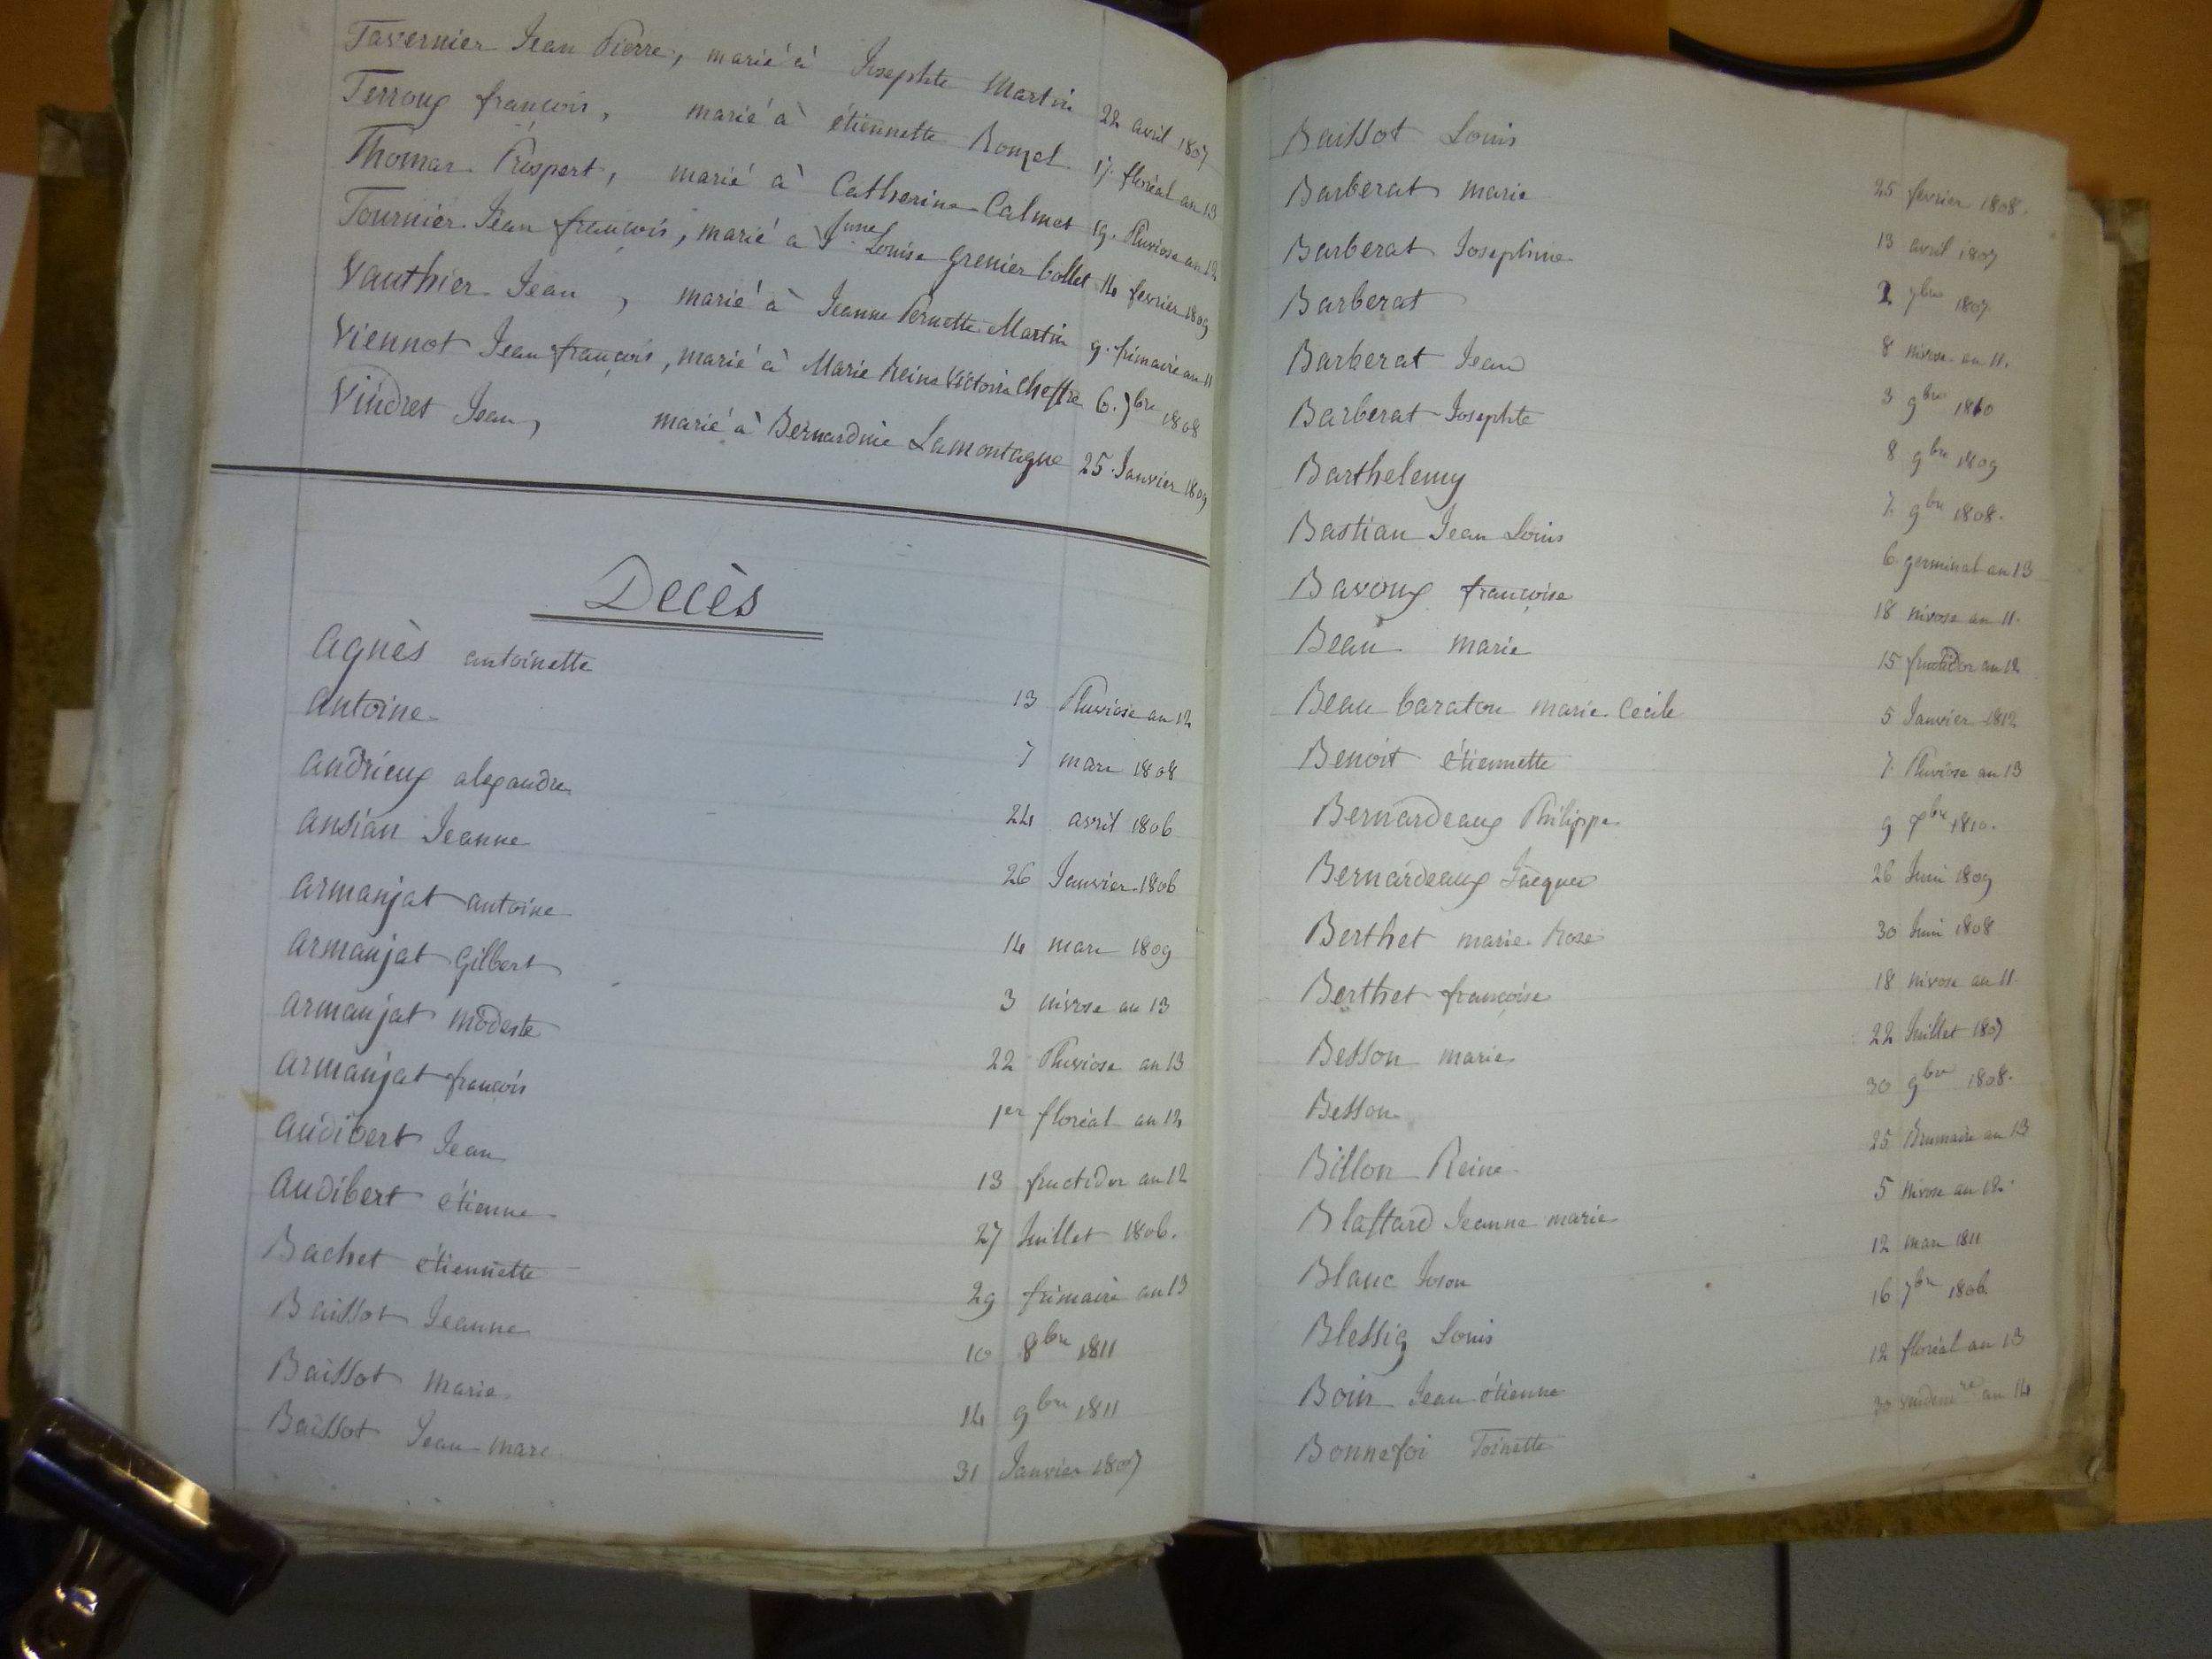 Tavernier Jean Pierre, marié à Josephte Martin 22 avril 1807
Terroux françois, marié à étiennette Bonzel 17. floréal an 13
Thomas Prospert, marié à Catherine Calmet 19. Pluviose an 12
Tournier Jean françois, marié à Louise grenier bollet 14 fevrier 1809
Vauthier Jean, marié à Jeanne Pernette Martin 9. frimaire an 11
Viennot Jean françois, marié à Marie Reine Victoire 6. 7bre 1808
Vindret Jean, marié à Bernardine Lamontagne 25 Janvier 1809
Decès
Agnès antoinette 13 Pluviose an 12
Antoine 7 mars 1808
Andrieux alexandre 24 avril 1806
Ansian Jeanne 26 Janvier 1806
Armanjat antoine 14 mars 1809
Armanjat Gilbert 3 nivose an 13
Armanjat modeste 22 Pluviose an 13
Armanjat françois 1er floréal an 12
Audibert Jean 13 fructidor an 12
Audibert étienne 27 Juillet 1806.
Bachet étiennette 29 frimaire an 13
Baissot Jeanne 10 8bre 1811
Baissot Marie 14 9bre 1811
Baissot Jean marc 31 Janvier 1807
Baissot Louis 25 fevrier 1808.
Barberat marie 13 avril 1807
Barberat Josephine 2 7bre 1807
Barberat 8 nivose an 11.
Barberat Jean 3 9bre 1810
Barberat Josephte 8 9bre 1809
Barthelemy 7. 9bre 1808.
Bastian Jean Louis 6 germinal an 13
Bavoux françoise 18 nivose an 11.
Beau marie 15 fructidor an 12
Beau baraton marie Cecile 5 Janvier 1812
Benoit étiennette 7. Pluviose an 13
Bernardeaux Philippe 9 7bre 1810.
Bernardeaux Jacques 26 Juin 1809
Berthet marie Rose 30 Juin 1808
Berthet françoise 18 nivose an 11.
Besson marie 22 Juillet 1807
Besson 30 9bre 1808.
Billon Reine 25 Brumaire an 13
Blassard Jeanne marie 5 Nivose an 12.
Blanc 12 mars 1811
Blessig Louis 16 7bre 1806.
Boin Jean étienne 12 floréal an 13
Bonnefoi Toinette 30 an 14